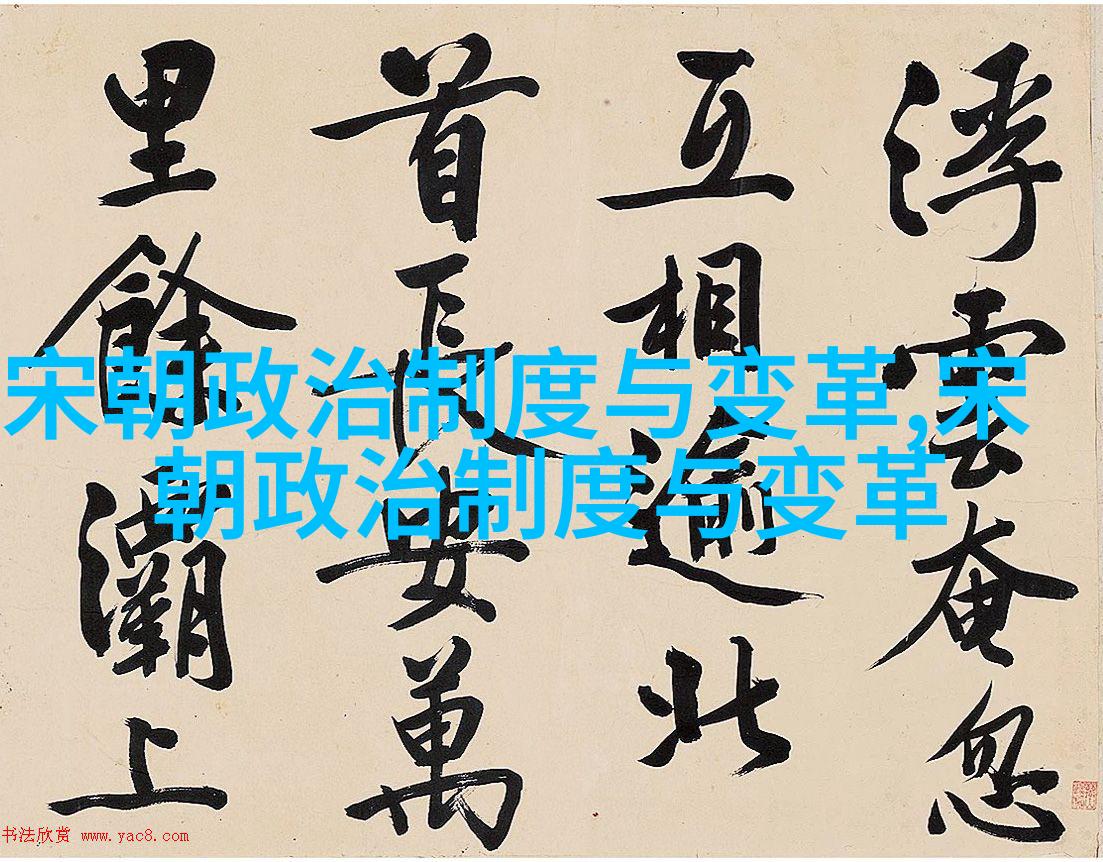 浮雲奄忽
互相逾北
首長安萬
里餘灞上
宋朝政治制度与变革,宋
朝政治制度与变革
书法欣赏 www.yac8.com